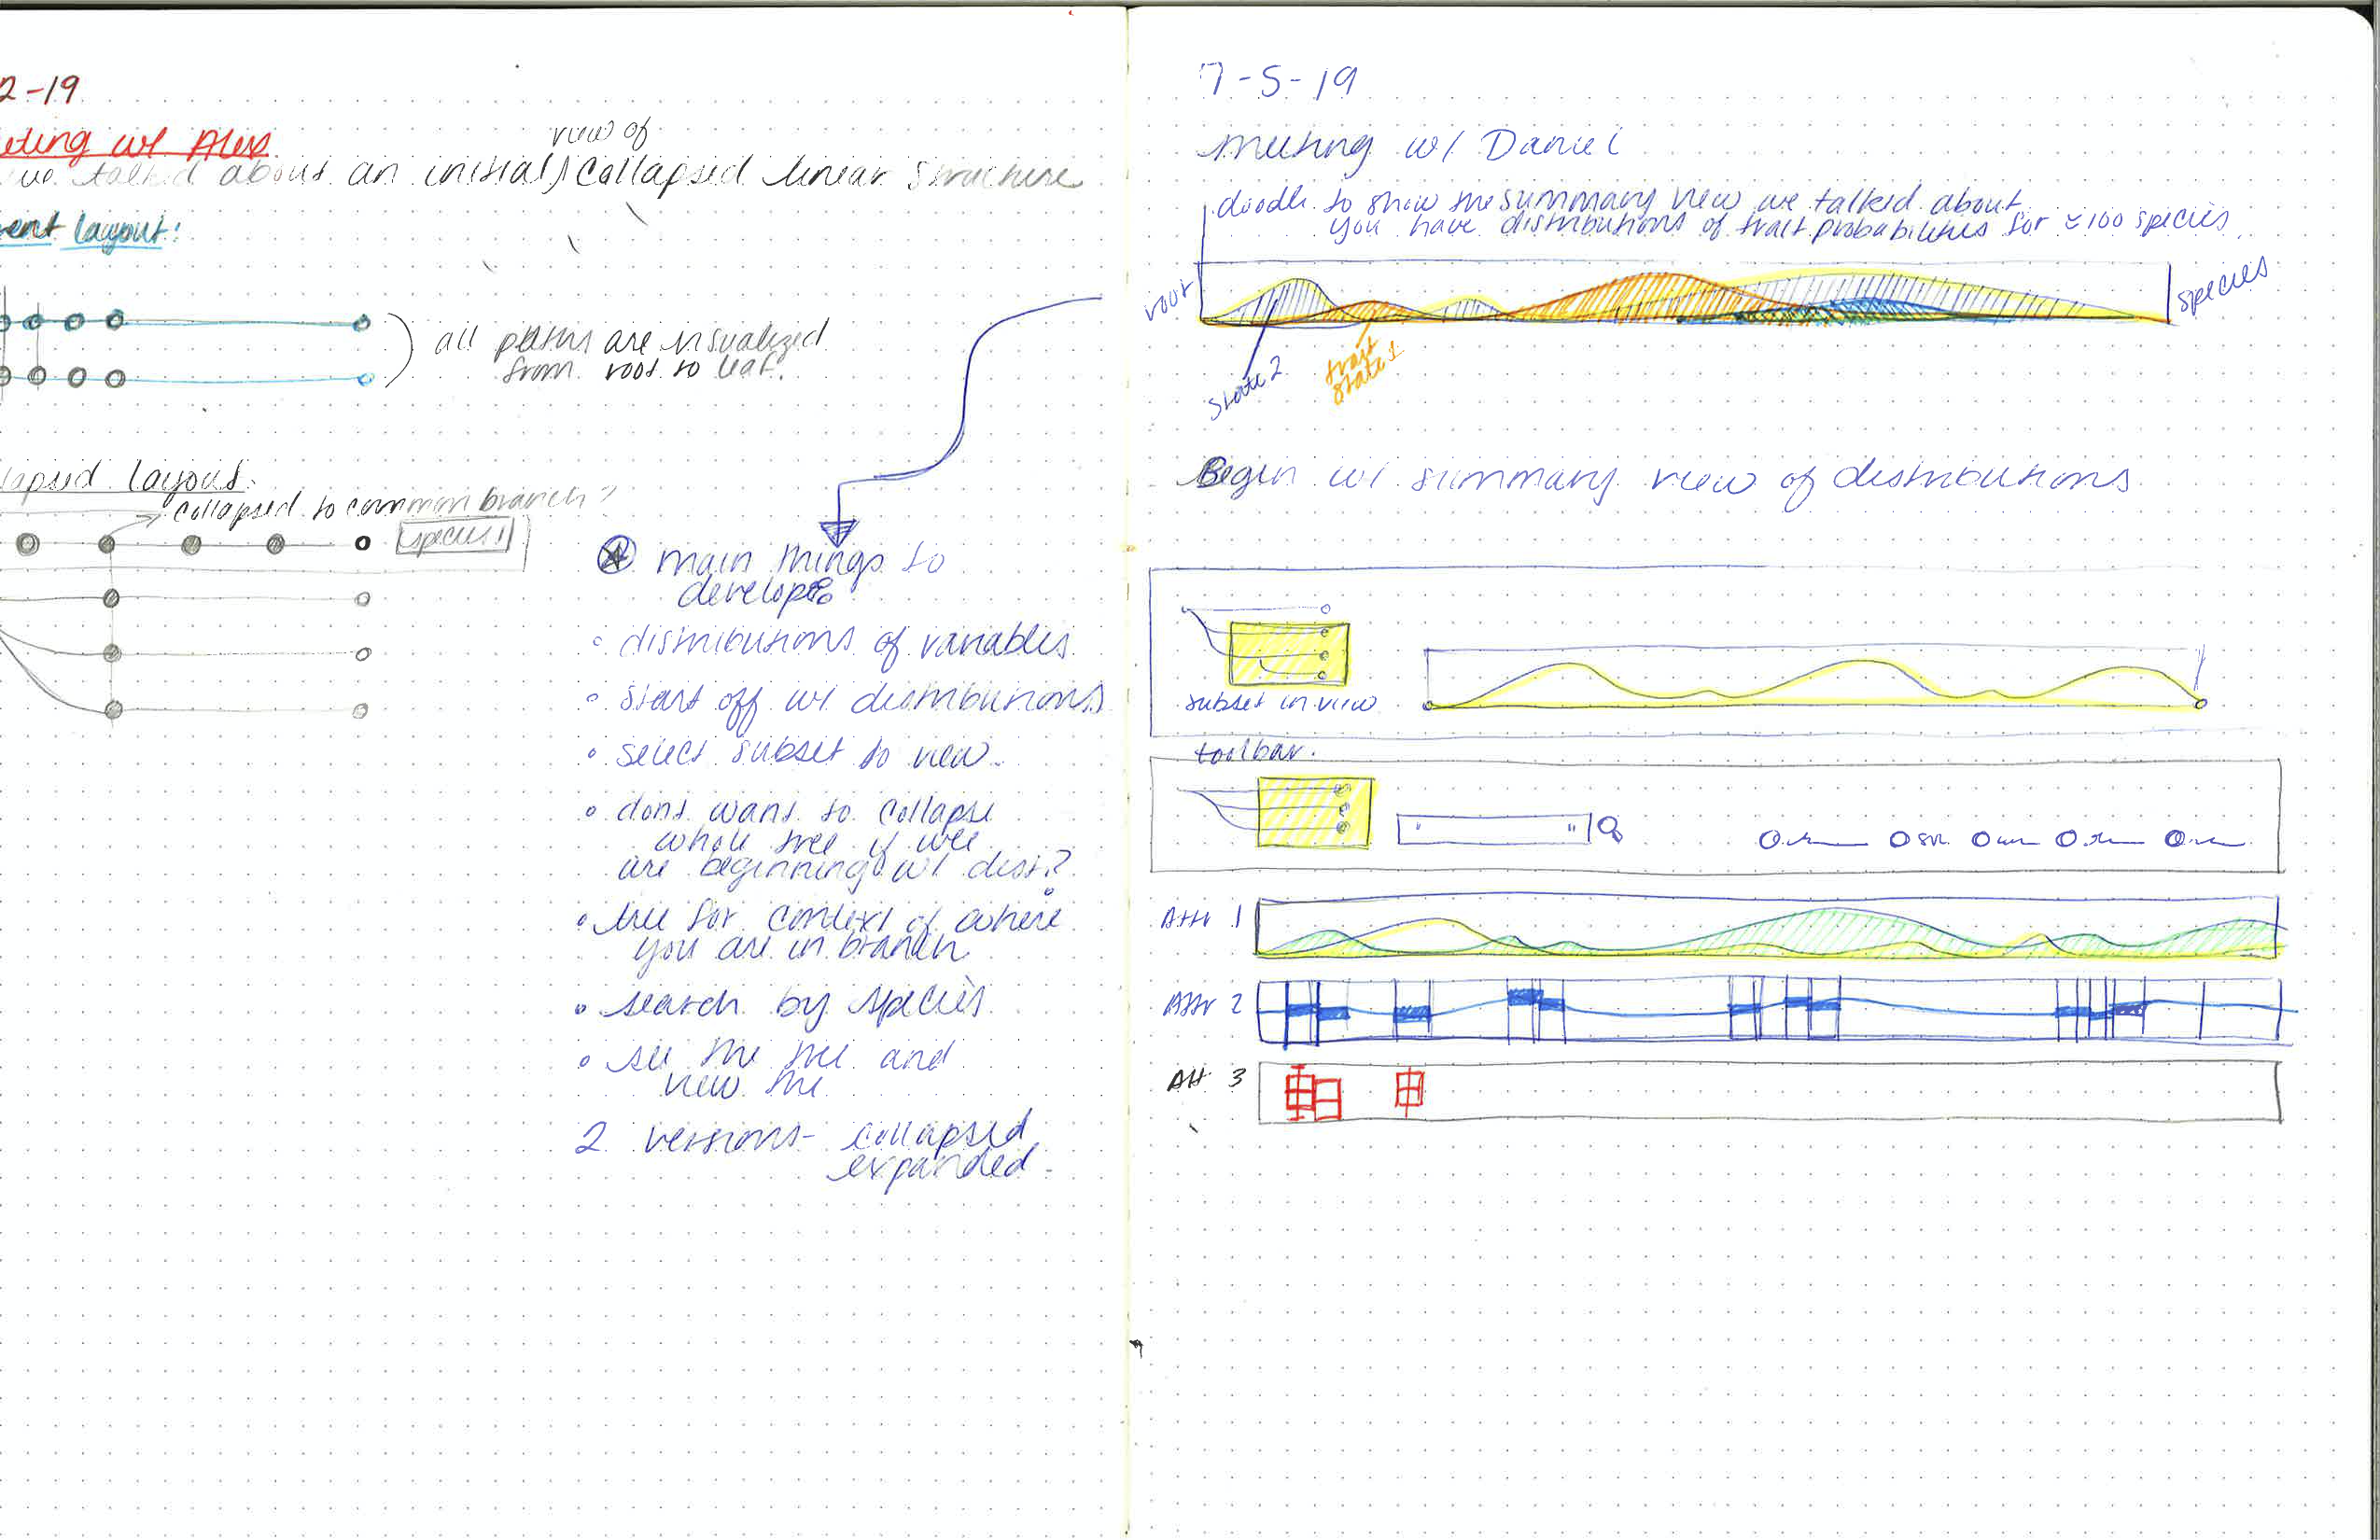 2-19
eting w/ Alex
view of
we talked about an initial, collapsed linear structure
ent layout:
all paths are visualized
from root to leaf.
lapsed layout.
collapsed to common branch?
species 1
main things to
develop:
distributions of variables
start off w/ distributions
select subset to view
dont want to collapse
whole tree if we
are beginning w/ dist?
tree for context of where
you are in branch
search by species
see the tree and
view the
2 versions- collapsed,
expanded.
7-5-19
Meeting w/ Daniel
doodle to show the summary view we talked about
you have distributions of trait probabilities for ≈100 species
root
species
state 2
trait
state 1
Begin w/ summary view of distributions
subset in view
toolbar.
Attr 1
Attr 2
Att 3